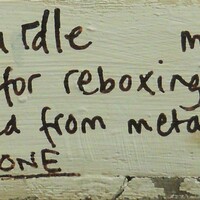 urdle m
for reboxing
d from meta
ONE